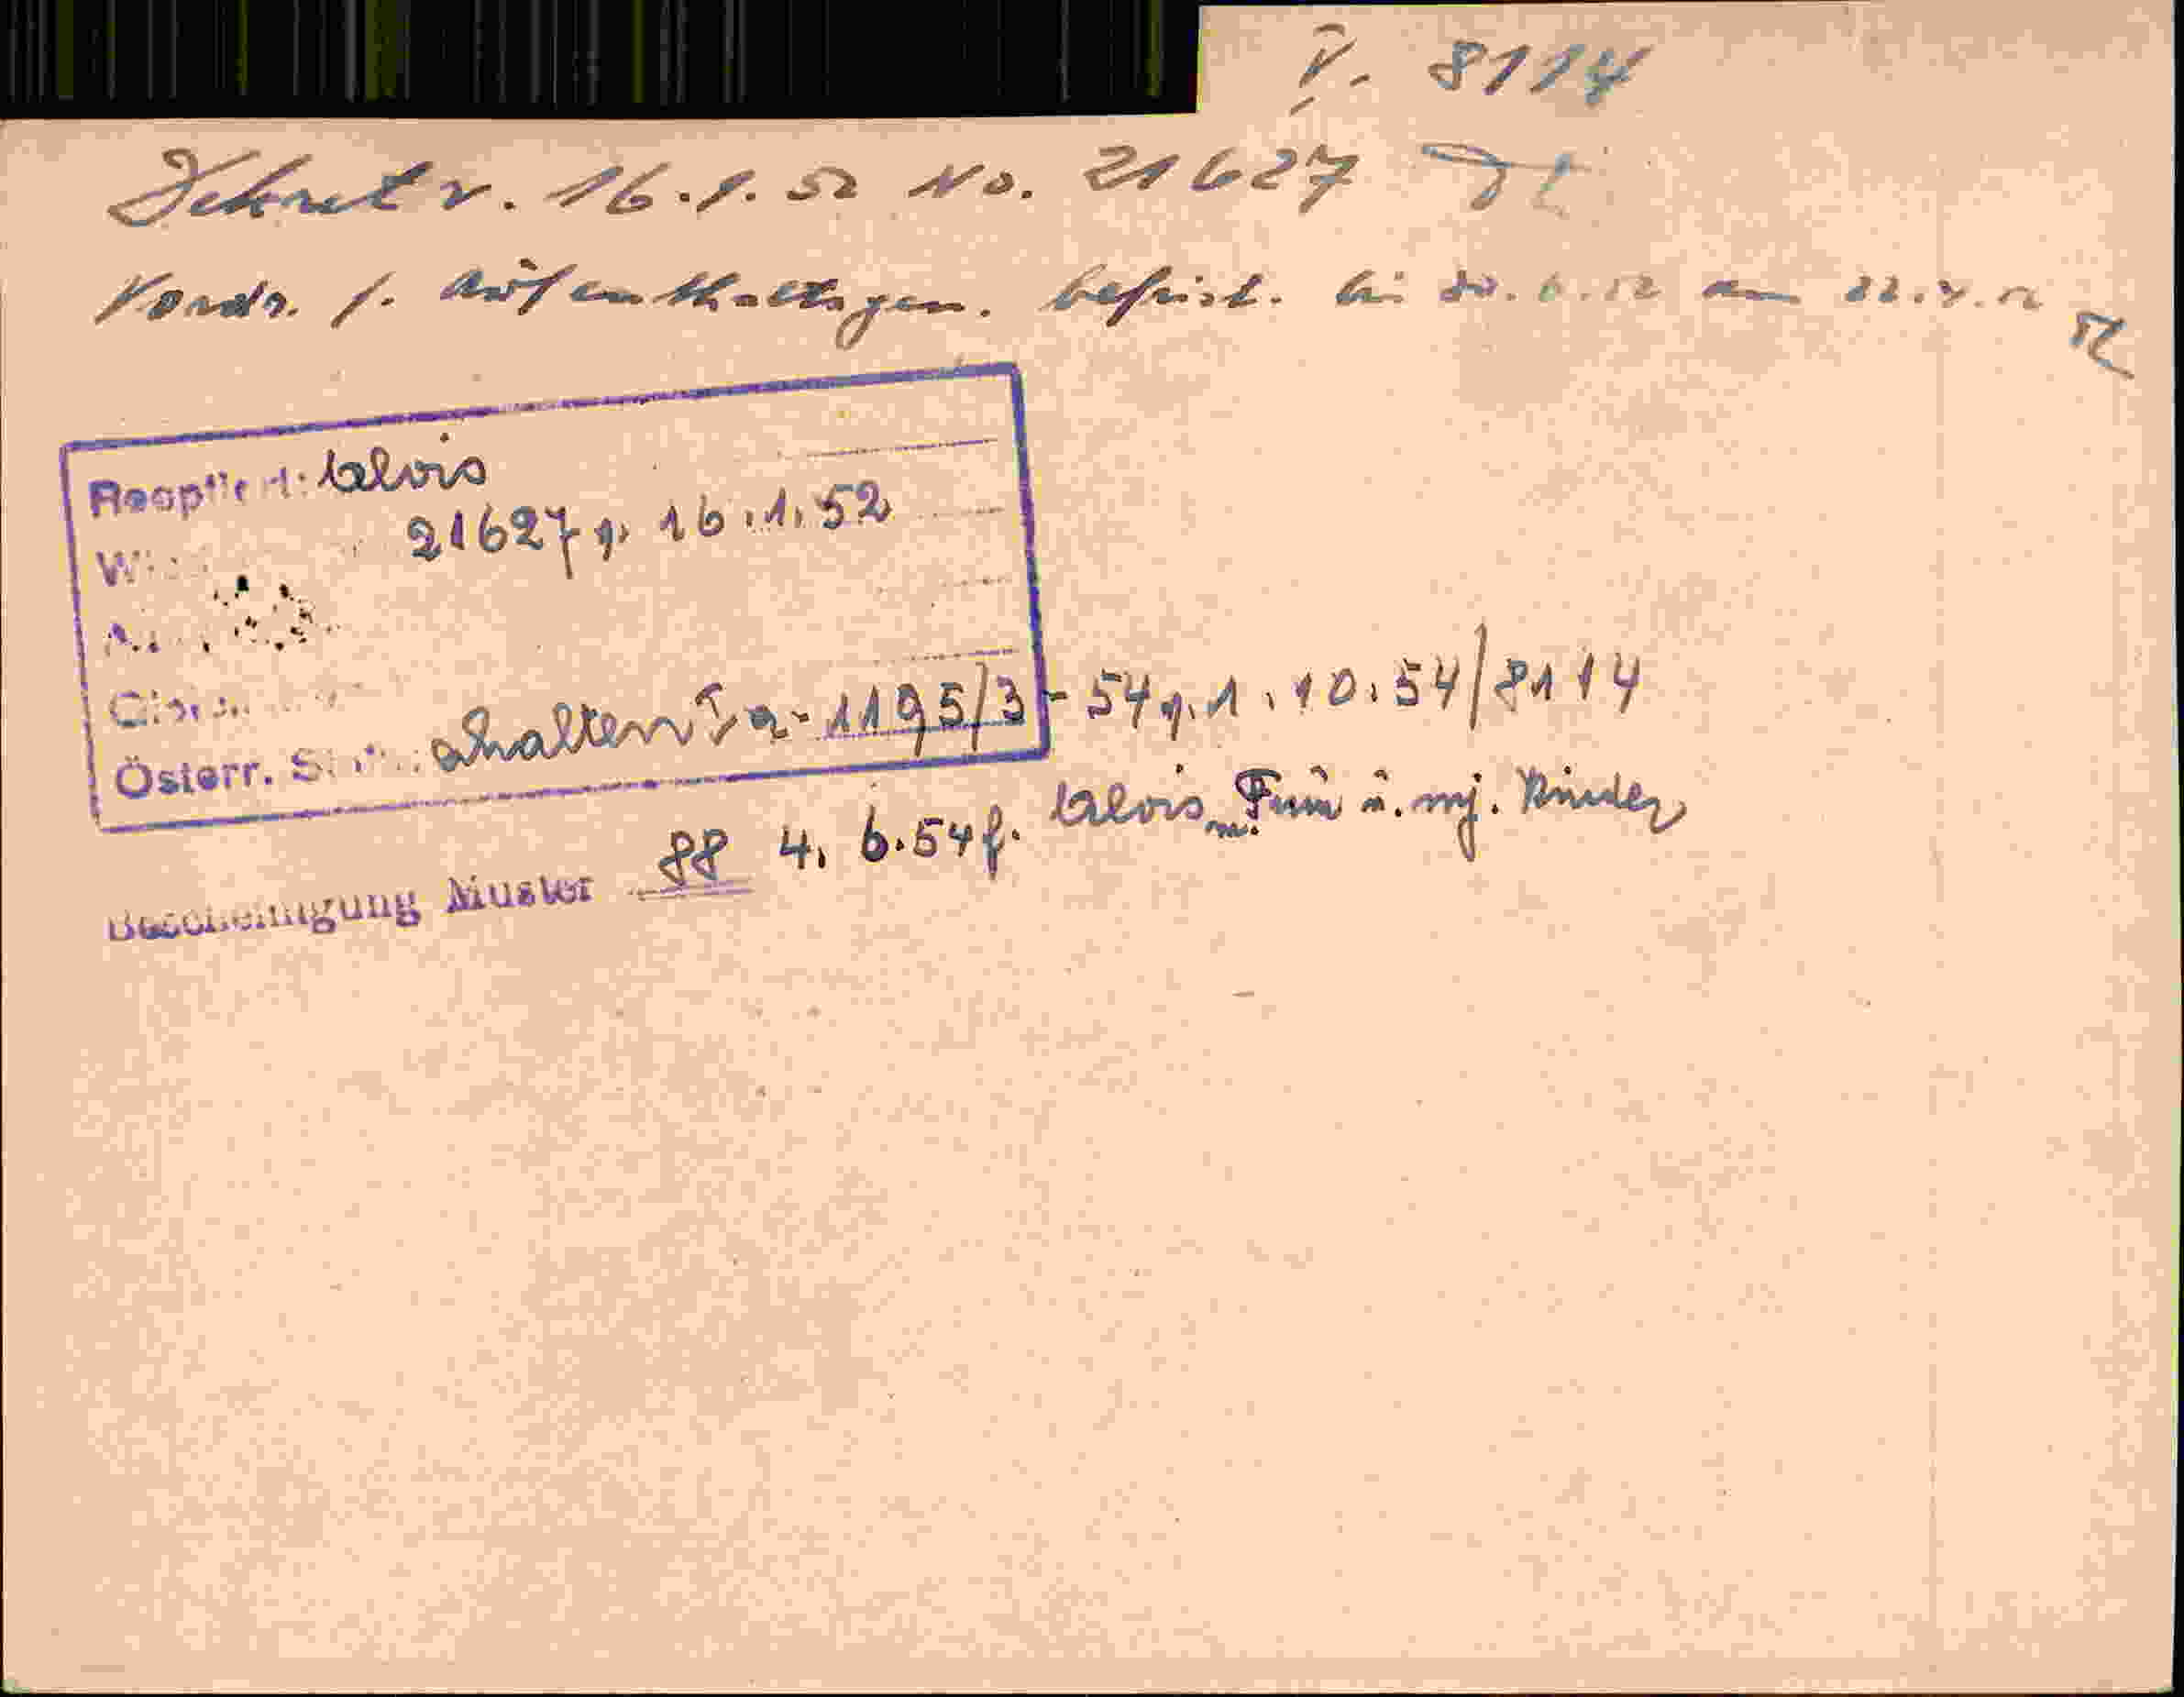 V. 8114
Dekret v. 16.1.52 No. 21627
Vordr. f. Aufenthaltsgen. befrist. bis 30.6.52 am 22.4.52
Reoptiert: Alois
21627 v. 16.1.52
Österr. erhalten 1195/3-54 v. 1.10.54/8114
Bescheinigung Muster 88 4.6.54 f. Alois m. Frau u. mj. Kinder